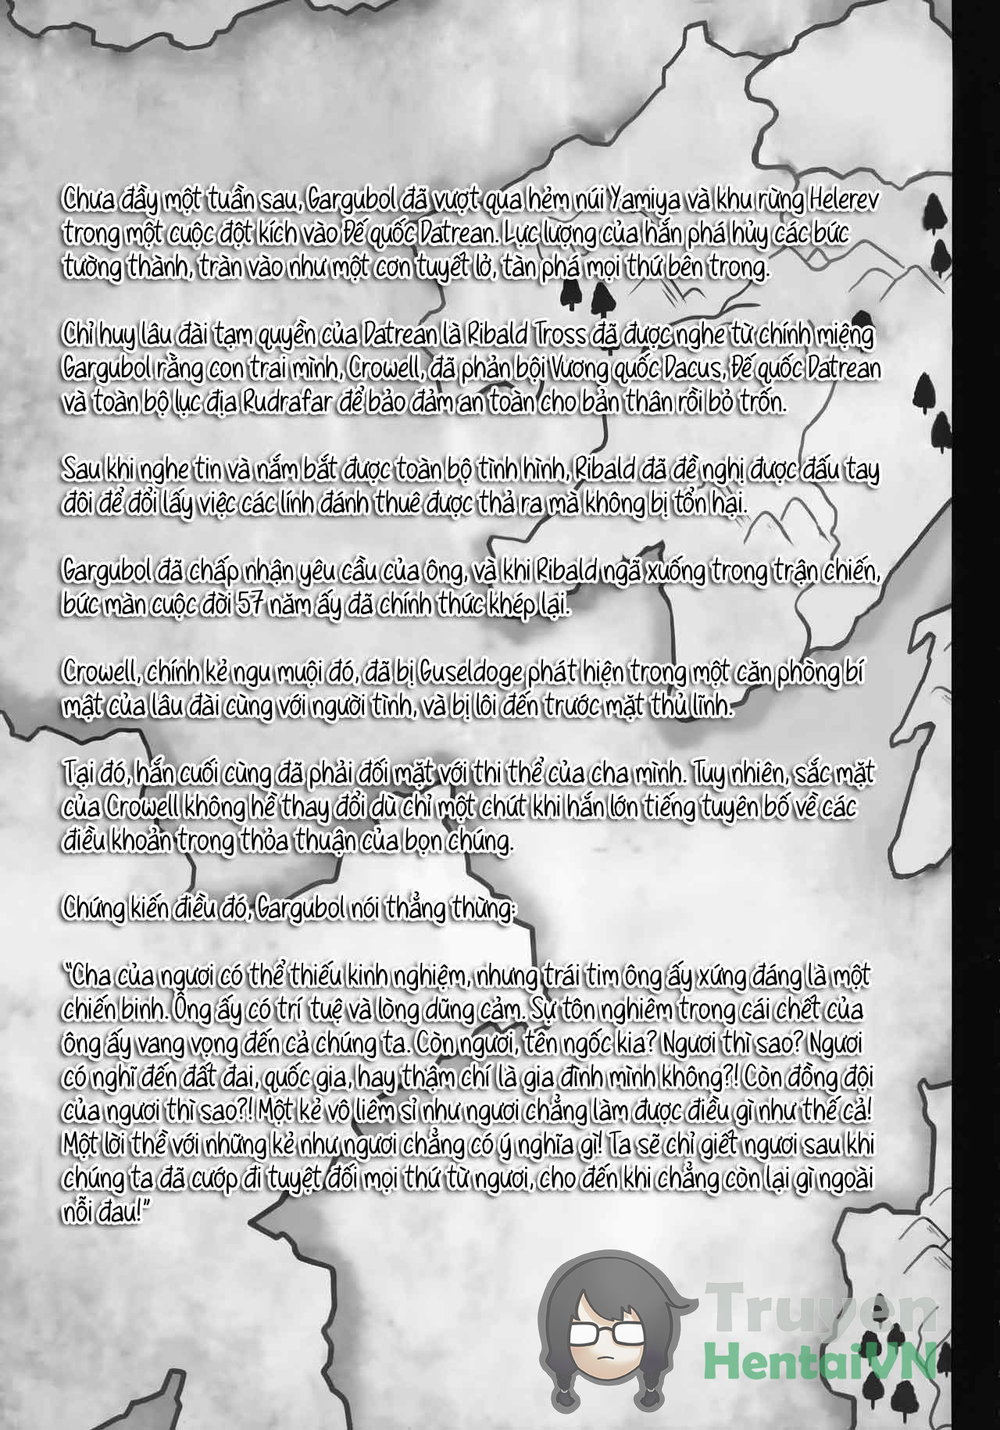 Chưa đầy một tuần sau, Gargubol đã vượt qua hẻm núi Yamiya và khu rừng Helerev
trong một cuộc đột kích vào Đế quốc Datrean. Lực lượng của hắn phá hủy các bức
tường thành, tràn vào như một cơn tuyết lở, tàn phá mọi thứ bên trong.
Chỉ huy lâu đài tạm quyền của Datrean là Ribald Tross đã được nghe từ chính miệng
Gargubol rằng con trai mình, Crowell, đã phản bội Vương quốc Dacus, Đế quốc Datrean
và toàn bộ lục địa Rudrafar để bảo đảm an toàn cho bản thân rồi bỏ trốn.
Sau khi nghe tin và nắm bắt được toàn bộ tình hình, Ribald đã đề nghị được đấu tay
đôi để đổi lấy việc các lính đánh thuê được thả ra mà không bị tổn hại.
Gargubol đã chấp nhận yêu cầu của ông, và khi Ribald ngã xuống trong trận chiến,
bức màn cuộc đời 57 năm ấy đã chính thức khép lại.
Crowell, chính kẻ ngu muội đó, đã bị Guseldoge phát hiện trong một căn phòng bí
mật của lâu đài cùng với người tình, và bị lôi đến trước mặt thủ lĩnh.
Tại đó, hắn cuối cùng đã phải đối mặt với thi thể của cha mình. Tuy nhiên, sắc mặt
của Crowell không hề thay đổi dù chỉ một chút khi hắn lớn tiếng tuyên bố về các
điều khoản trong thỏa thuận của bọn chúng.
Chứng kiến điều đó, Gargubol nói thẳng thừng:
"Cha của ngươi có thể thiếu kinh nghiệm, nhưng trái tim ông ấy xứng đáng là một
chiến binh. Ông ấy có trí tuệ và lòng dũng cảm. Sự tôn nghiêm trong cái chết của
ông ấy vang vọng đến cả chúng ta. Còn ngươi, tên ngốc kia? Ngươi thì sao? Ngươi
có nghĩ đến đất đai, quốc gia, hay thậm chí là gia đình mình không?! Còn đồng đội
của ngươi thì sao?! Một kẻ vô liêm sỉ như ngươi chẳng làm được điều gì như thế cả!
Một lời thề với những kẻ như ngươi chẳng có ý nghĩa gì! Ta sẽ chỉ giết ngươi sau khi
chúng ta đã cướp đi tuyệt đối mọi thứ từ ngươi, cho đến khi chẳng còn lại gì ngoài
nỗi đau!"
Truyen
HentaiVN